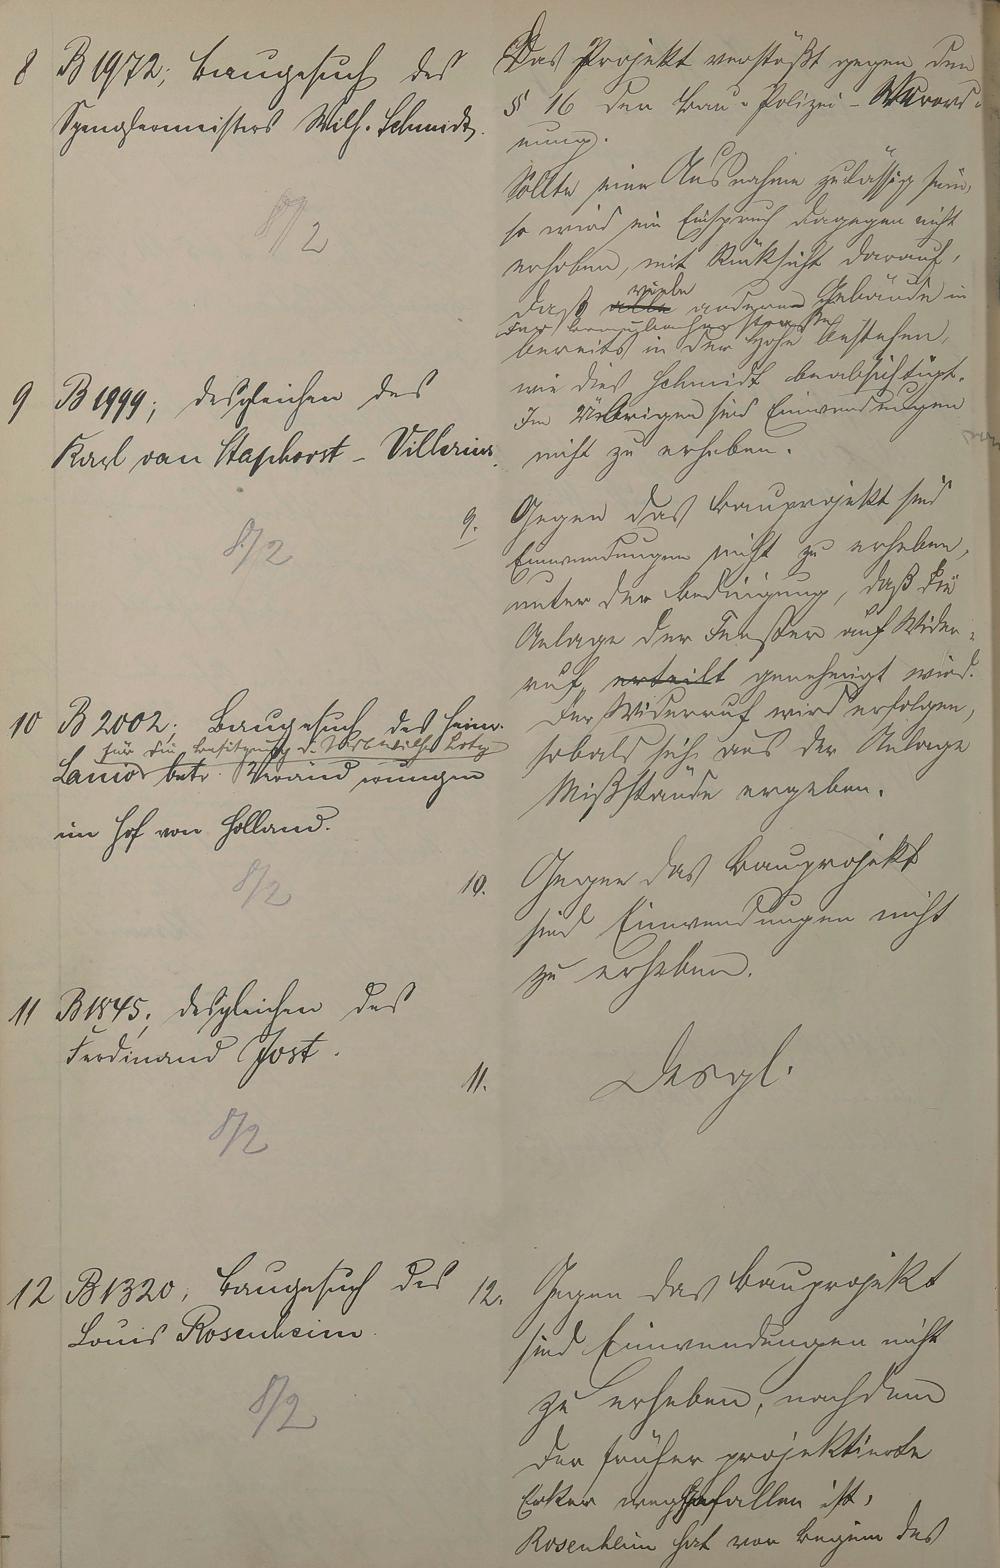 8 B 1972; Baugesuch des
Spenglermeisters Wilh. Schmidt.
8/2
Das Projekt verstößt gegen den
§ 16 der Bau-Polizei-Verord-
nung.
Sollte eine Ausnahme zulässig sein,
so wird ein Einspruch dagegen nicht
erhoben, mit Rücksicht darauf,
viele
daß alle anderen Gebäude in
der
bereits in der Höhe bestehen,
wie dies Schmidt beabsichtigt.
Im Übrigen sind Einwendungen
nicht zu erheben.
9 B 1999; desgleichen des
Karl van Staphorst-Villerius.
8/2
9. Gegen das Bauprojekt sind
Einwendungen nicht zu erheben,
unter der Bedingung, daß die
Anlage der Fenster auf Wider-
ruf erteilt genehmigt wird.
Der Widerruf wird erfolgen,
sobald sich aus der Anlage
Mißstände ergeben.
10 B 2002; Baugesuch des Heinr.
für die Besitzung d.
Lamor betr. Veränderungen
im Hof von Holland.
8/2
10. Gegen das Bauprojekt
sind Einwendungen nicht
zu erheben.
11 B 1845; desgleichen des
Ferdinand Jost.
8/2
11. Desgl.
12 B 1320, Baugesuch des
Louis Rosenheim
8/2
12. Gegen das Bauprojekt
sind Einwendungen nicht
zu erheben, nachdem
der früher projektierte
Erker weggefallen ist,
Rosenheim hat vor Beginn des